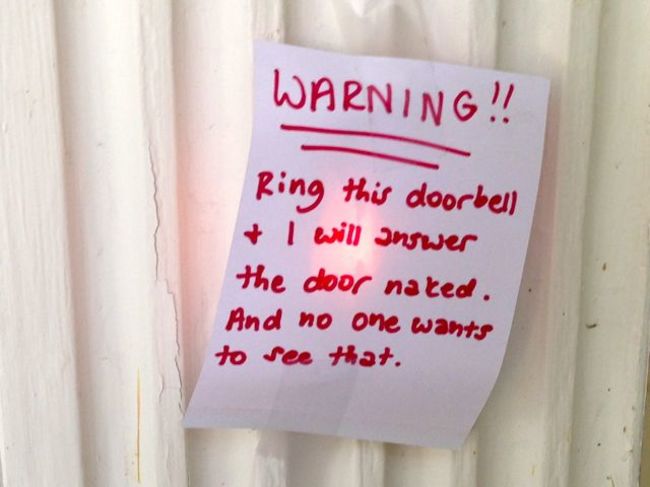 WARNING!!
Ring this doorbell
+ I will answer
the door naked.
And no one wants
to see that.